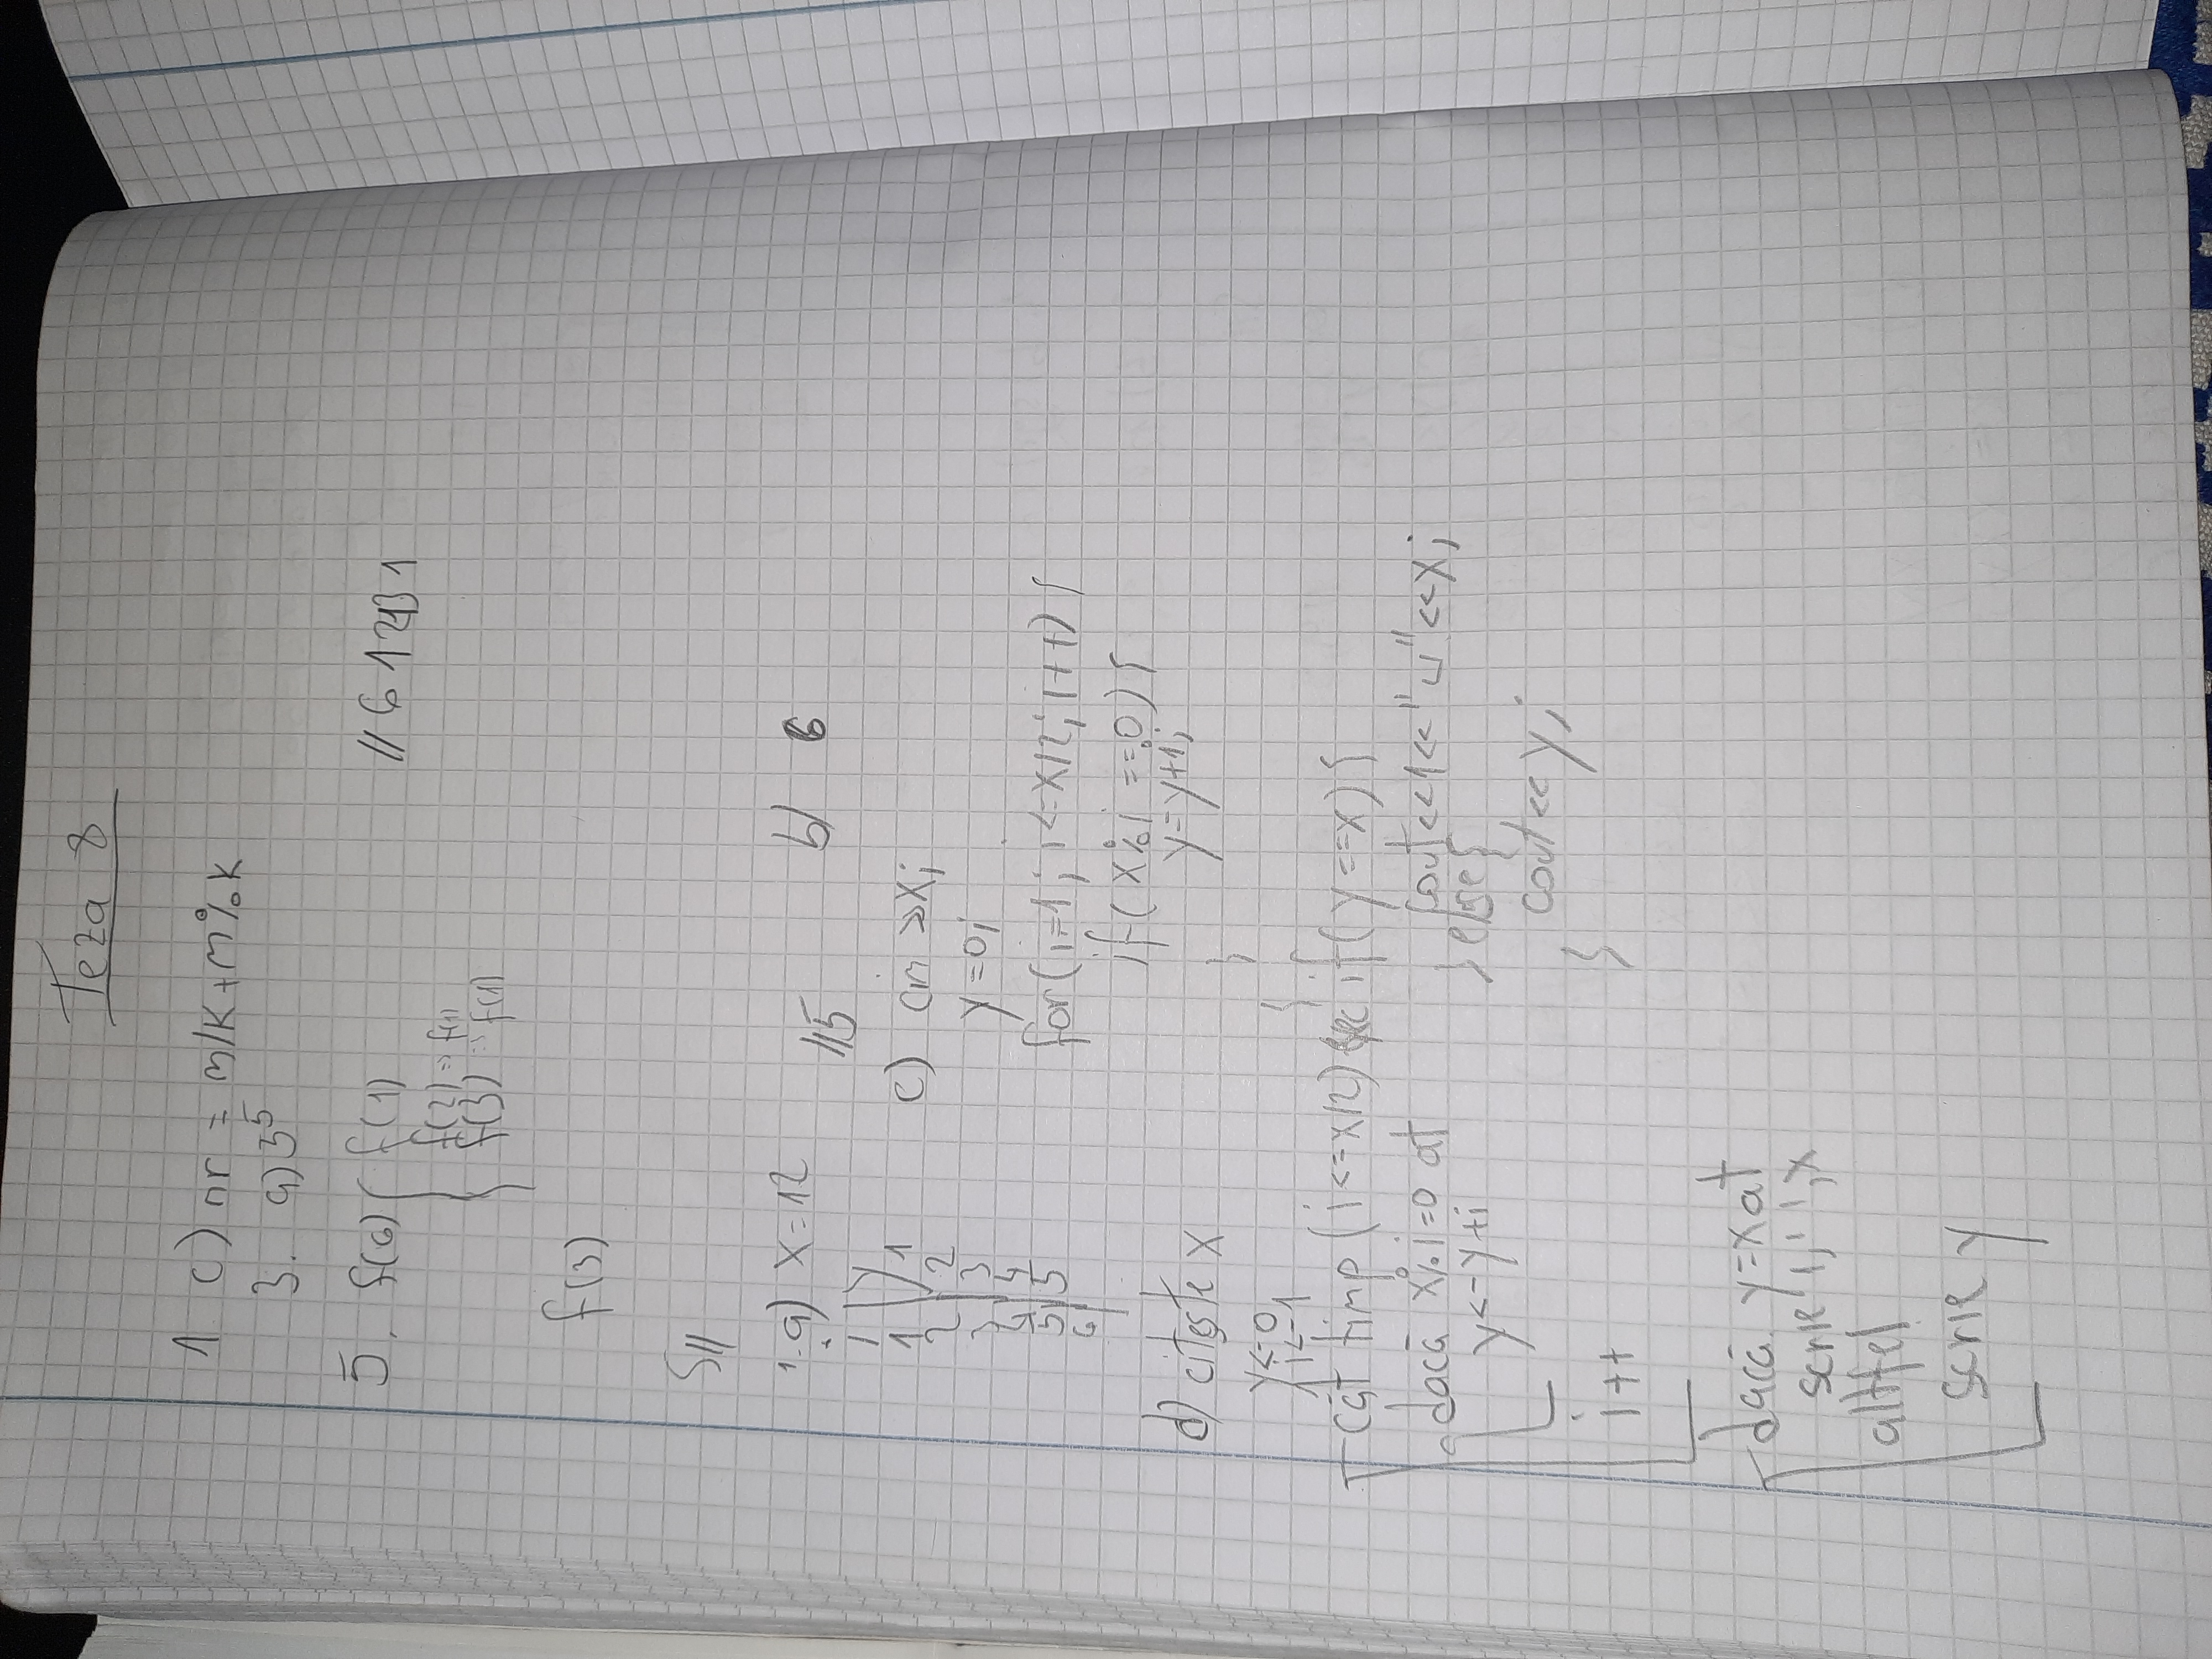 Teza 8
1 c) nr = m/k + m%k
3. a) 3^5
5. f(6) { f(1) // 6 1 2 1 3 1
f(2) => f(1)
f(3) => f(1)
f(3)
S//
1. a) x = 12 //5 b) 6
i | y
1 | 1
2 | 2
3 | 3
4 | 4
5 | 5
6 |
c) cin >> x;
y = 0;
for(i=1; i<=x/2; i++) {
if( x%i ==0 ) {
y = y+1;
}
}
if( y==x) {
cout<<1<<"␣"<<x;
} else {
cout<< y;
}
d) citește x
y<-0
i<-1
cât timp (i<=x/2)
dacă x%i=0 at
y<-y+i
i++
dacă y=x at
scrie 1,' ',x
altfel
scrie y